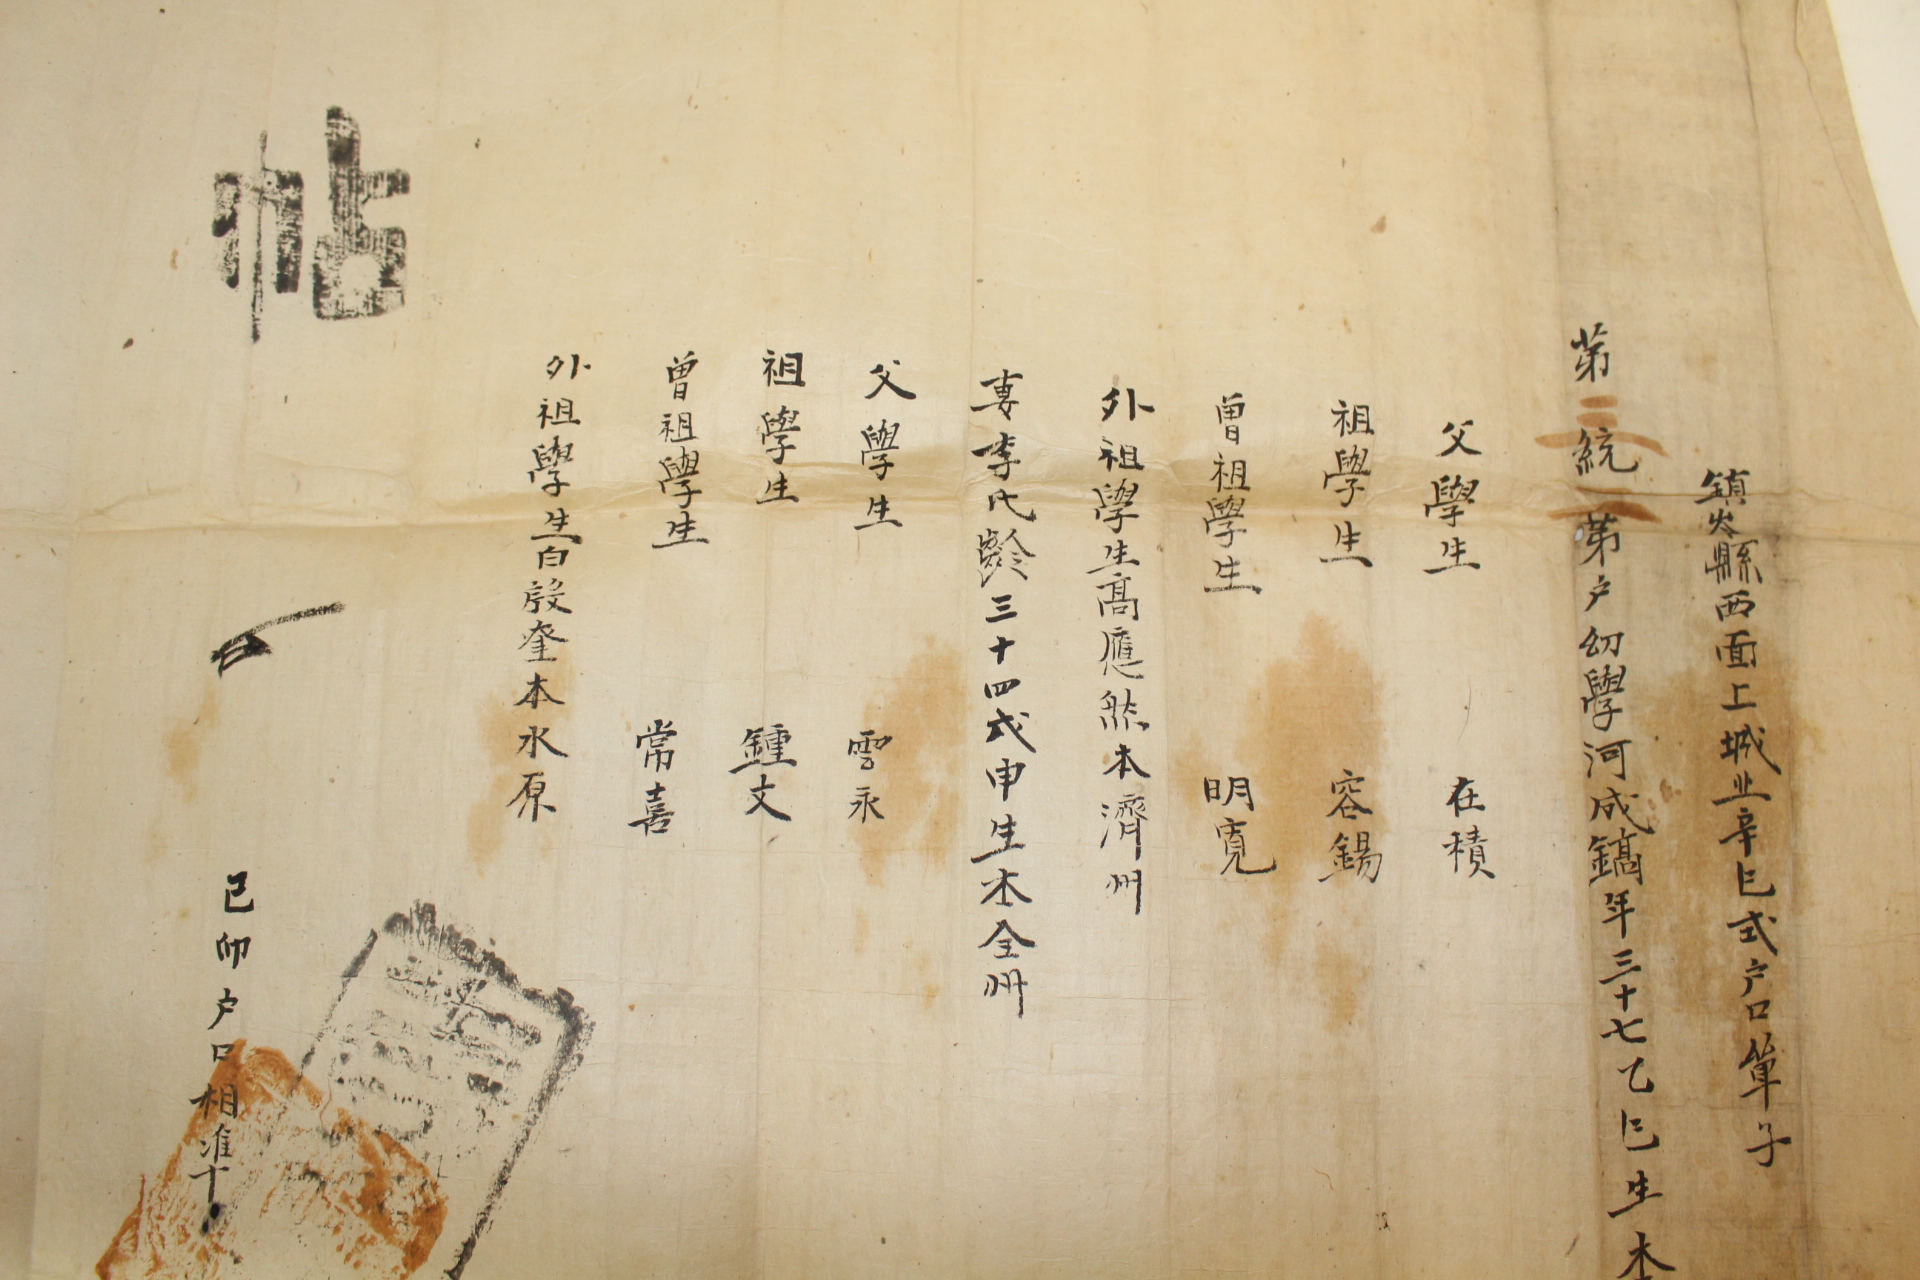 鎮岑縣西面上城北辛巳式户口單子
苐二統苐户幼學河成鎬年三十七乙巳生本
父學生 在積
祖學生 容錫
曽祖學生 明寛
外祖學生髙應然本濟州
妻李氏齡三十四戊申生本全州
父學生 雲永
祖學生 鍾文
曽祖學生 常喜
外祖學生白殷奎本水原
己卯户口相准十
帖